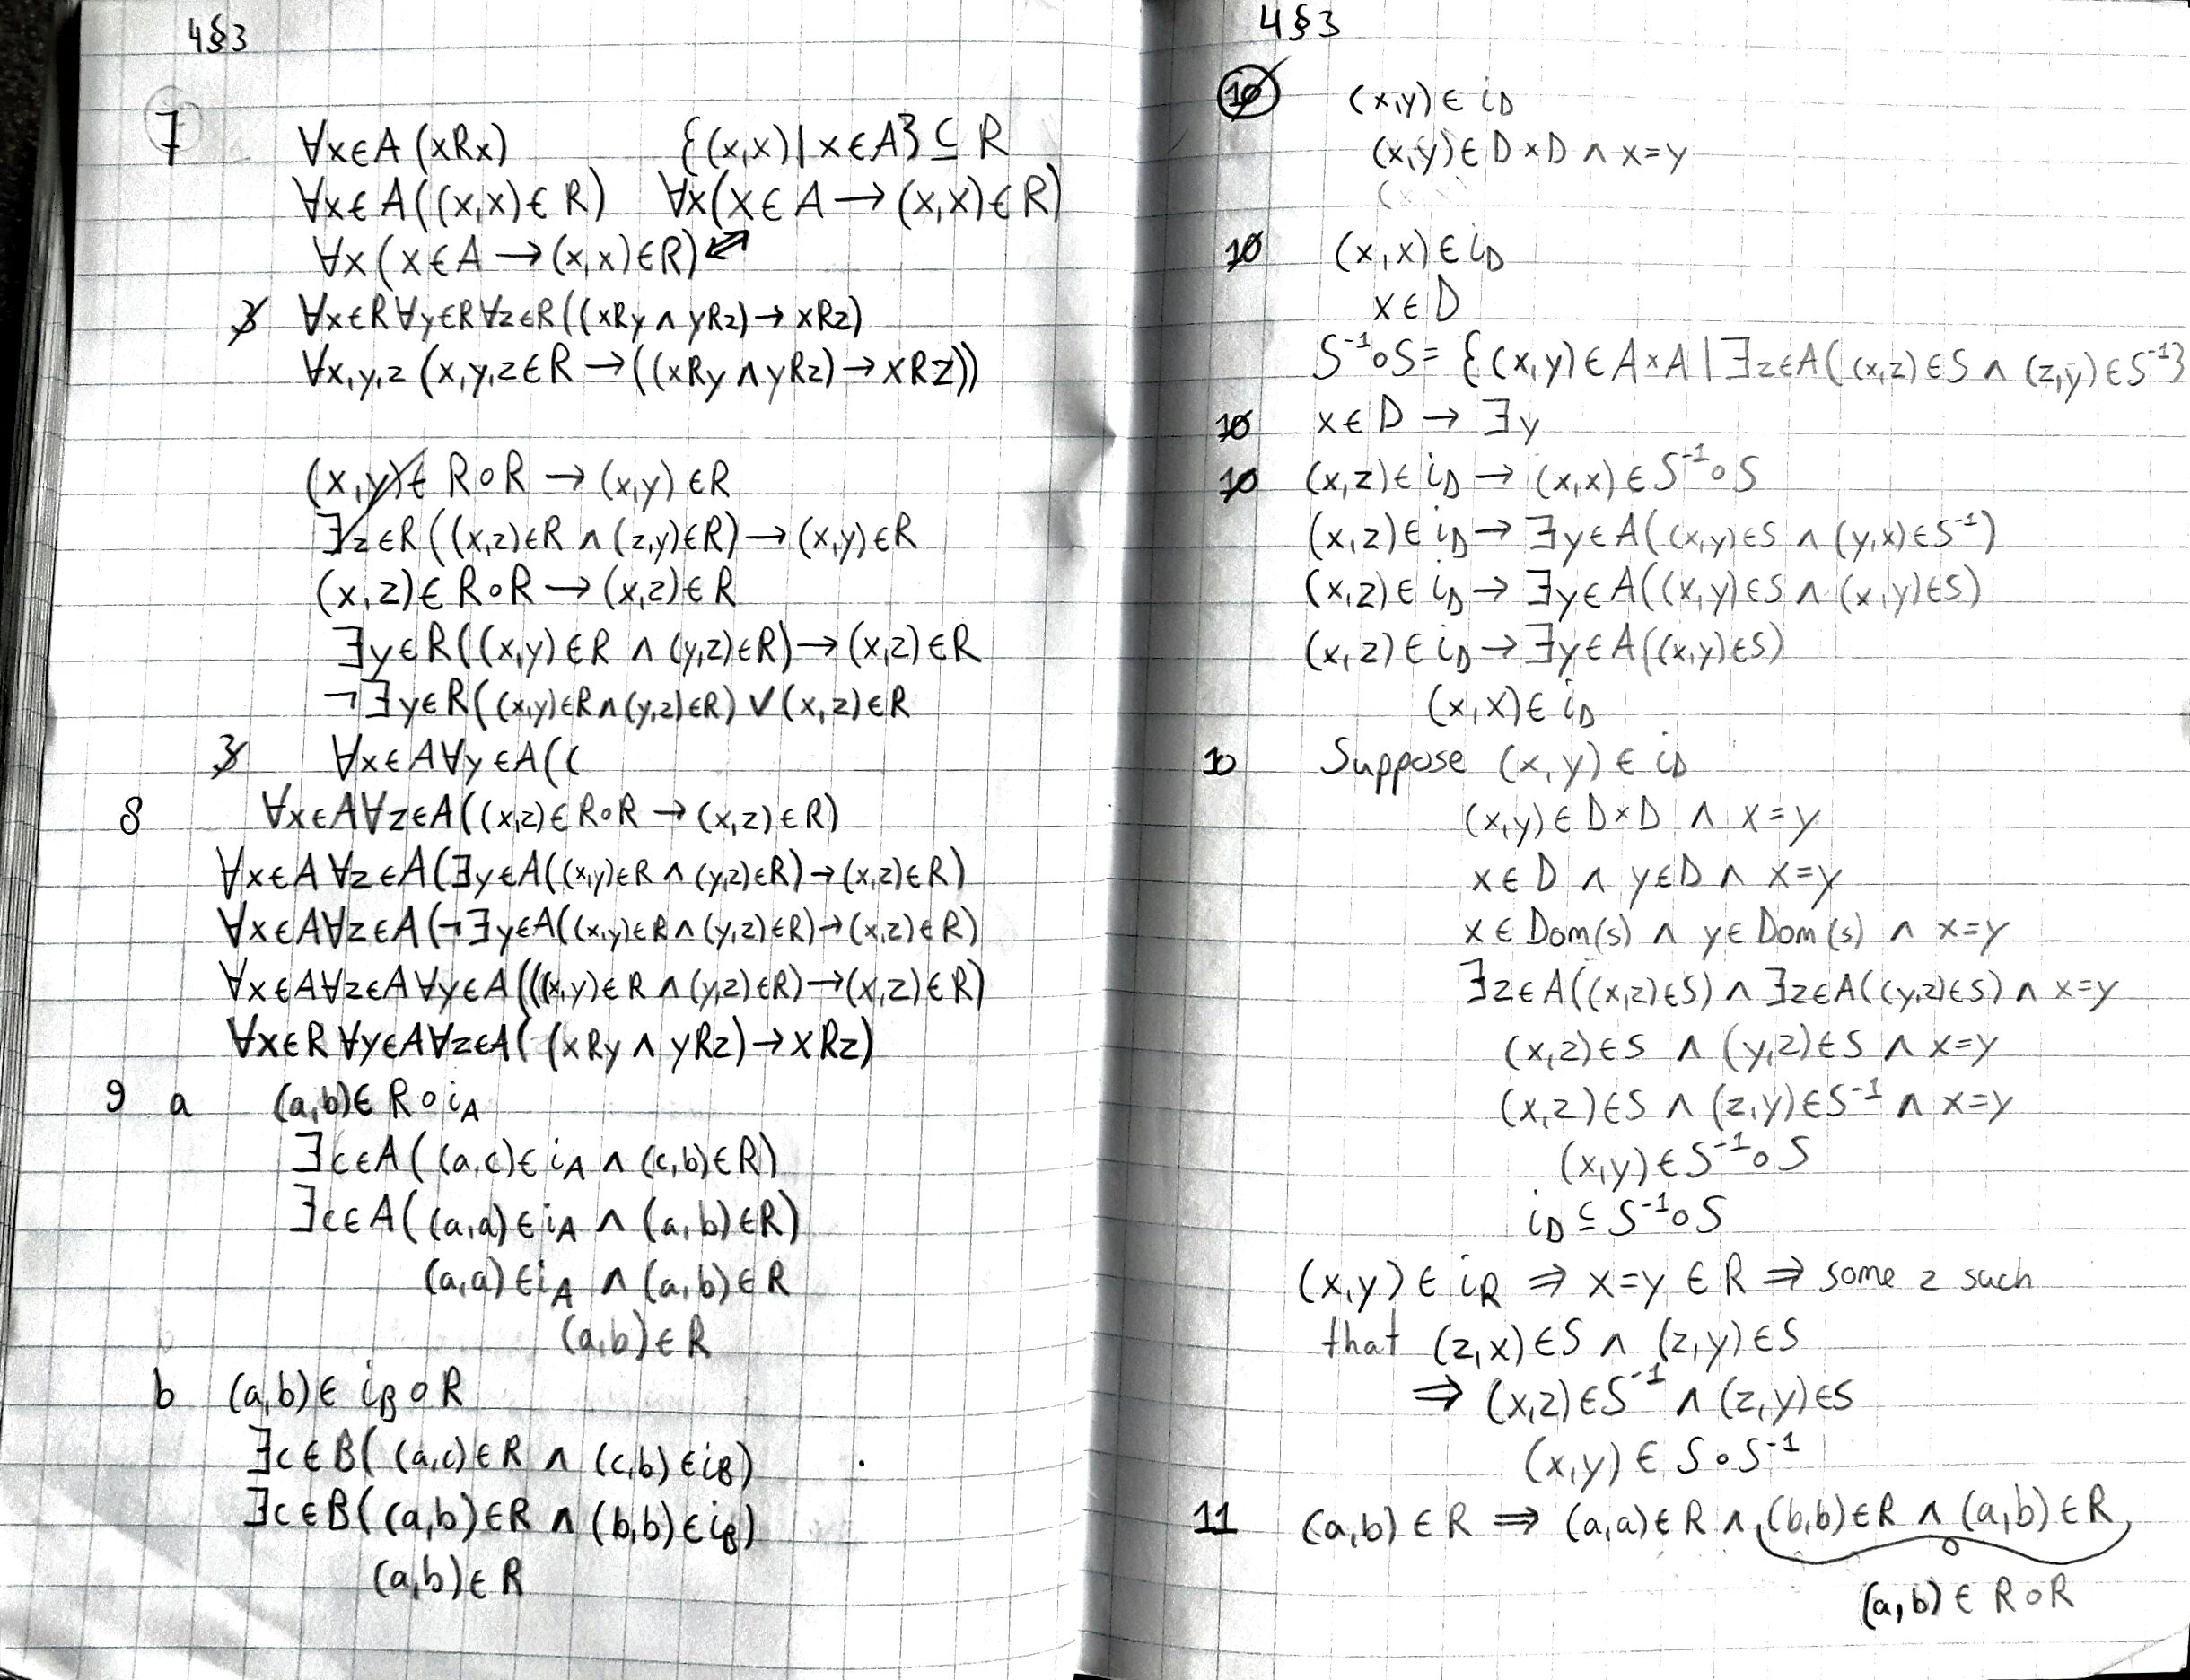 4§3
7 ∀x∈A(xRx) {(x,x)|x∈A}⊆R
∀x∈A((x,x)∈R) ∀x(x∈A→(x,x)∈R)
∀x(x∈A→(x,x)∈R)
3 ∀x∈R∀y∈R∀z∈R((xRy∧yRz)→xRz)
∀x,y,z(x,y,z∈R→((xRy∧yRz)→xRz))
(x,y)∈R∘R→(x,y)∈R
∃z∈R((x,z)∈R∧(z,y)∈R)→(x,y)∈R
(x,z)∈R∘R→(x,z)∈R
∃y∈R((x,y)∈R∧(y,z)∈R)→(x,z)∈R
¬∃y∈R((x,y)∈R∧(y,z)∈R)∨(x,z)∈R
3 ∀x∈A∀y∈A((
8 ∀x∈A∀z∈A((x,z)∈R∘R→(x,z)∈R)
∀x∈A∀z∈A(∃y∈A((x,y)∈R∧(y,z)∈R)→(x,z)∈R)
∀x∈A∀z∈A(¬∃y∈A((x,y)∈R∧(y,z)∈R)→(x,z)∈R)
∀x∈A∀z∈A∀y∈A(((x,y)∈R∧(y,z)∈R)→(x,z)∈R)
∀x∈R∀y∈A∀z∈A((xRy∧yRz)→xRz)
9 a (a,b)∈R∘i_A
∃c∈A((a,c)∈i_A∧(c,b)∈R)
∃c∈A((a,a)∈i_A∧(a,b)∈R)
(a,a)∈i_A∧(a,b)∈R
(a,b)∈R
b (a,b)∈i_B∘R
∃c∈B((a,c)∈R∧(c,b)∈i_B)
∃c∈B((a,b)∈R∧(b,b)∈i_B)
(a,b)∈R
4§3
10 (x,y)∈i_D
(x,y)∈D×D∧x=y
10 (x,x)∈i_D
x∈D
S⁻¹∘S={(x,y)∈A×A|∃z∈A((x,z)∈S∧(z,y)∈S⁻¹}
10 x∈D→∃y
10 (x,z)∈i_D→(x,x)∈S⁻¹∘S
(x,z)∈i_D→∃y∈A((x,y)∈S∧(y,x)∈S⁻¹)
(x,z)∈i_D→∃y∈A((x,y)∈S∧(x,y)∈S)
(x,z)∈i_D→∃y∈A((x,y)∈S)
(x,x)∈i_D
10 Suppose (x,y)∈i_D
(x,y)∈D×D∧x=y
x∈D∧y∈D∧x=y
x∈Dom(s)∧y∈Dom(s)∧x=y
∃z∈A((x,z)∈S)∧∃z∈A((y,z)∈S)∧x=y
(x,z)∈S∧(y,z)∈S∧x=y
(x,z)∈S∧(z,y)∈S⁻¹∧x=y
(x,y)∈S⁻¹∘S
i_D⊆S⁻¹∘S
(x,y)∈i_R⇒x=y∈R⇒some z such
that (z,x)∈S∧(z,y)∈S
⇒(x,z)∈S⁻¹∧(z,y)∈S
(x,y)∈S∘S⁻¹
11 (a,b)∈R⇒(a,a)∈R∧(b,b)∈R∧(a,b)∈R
∘
(a,b)∈R∘R